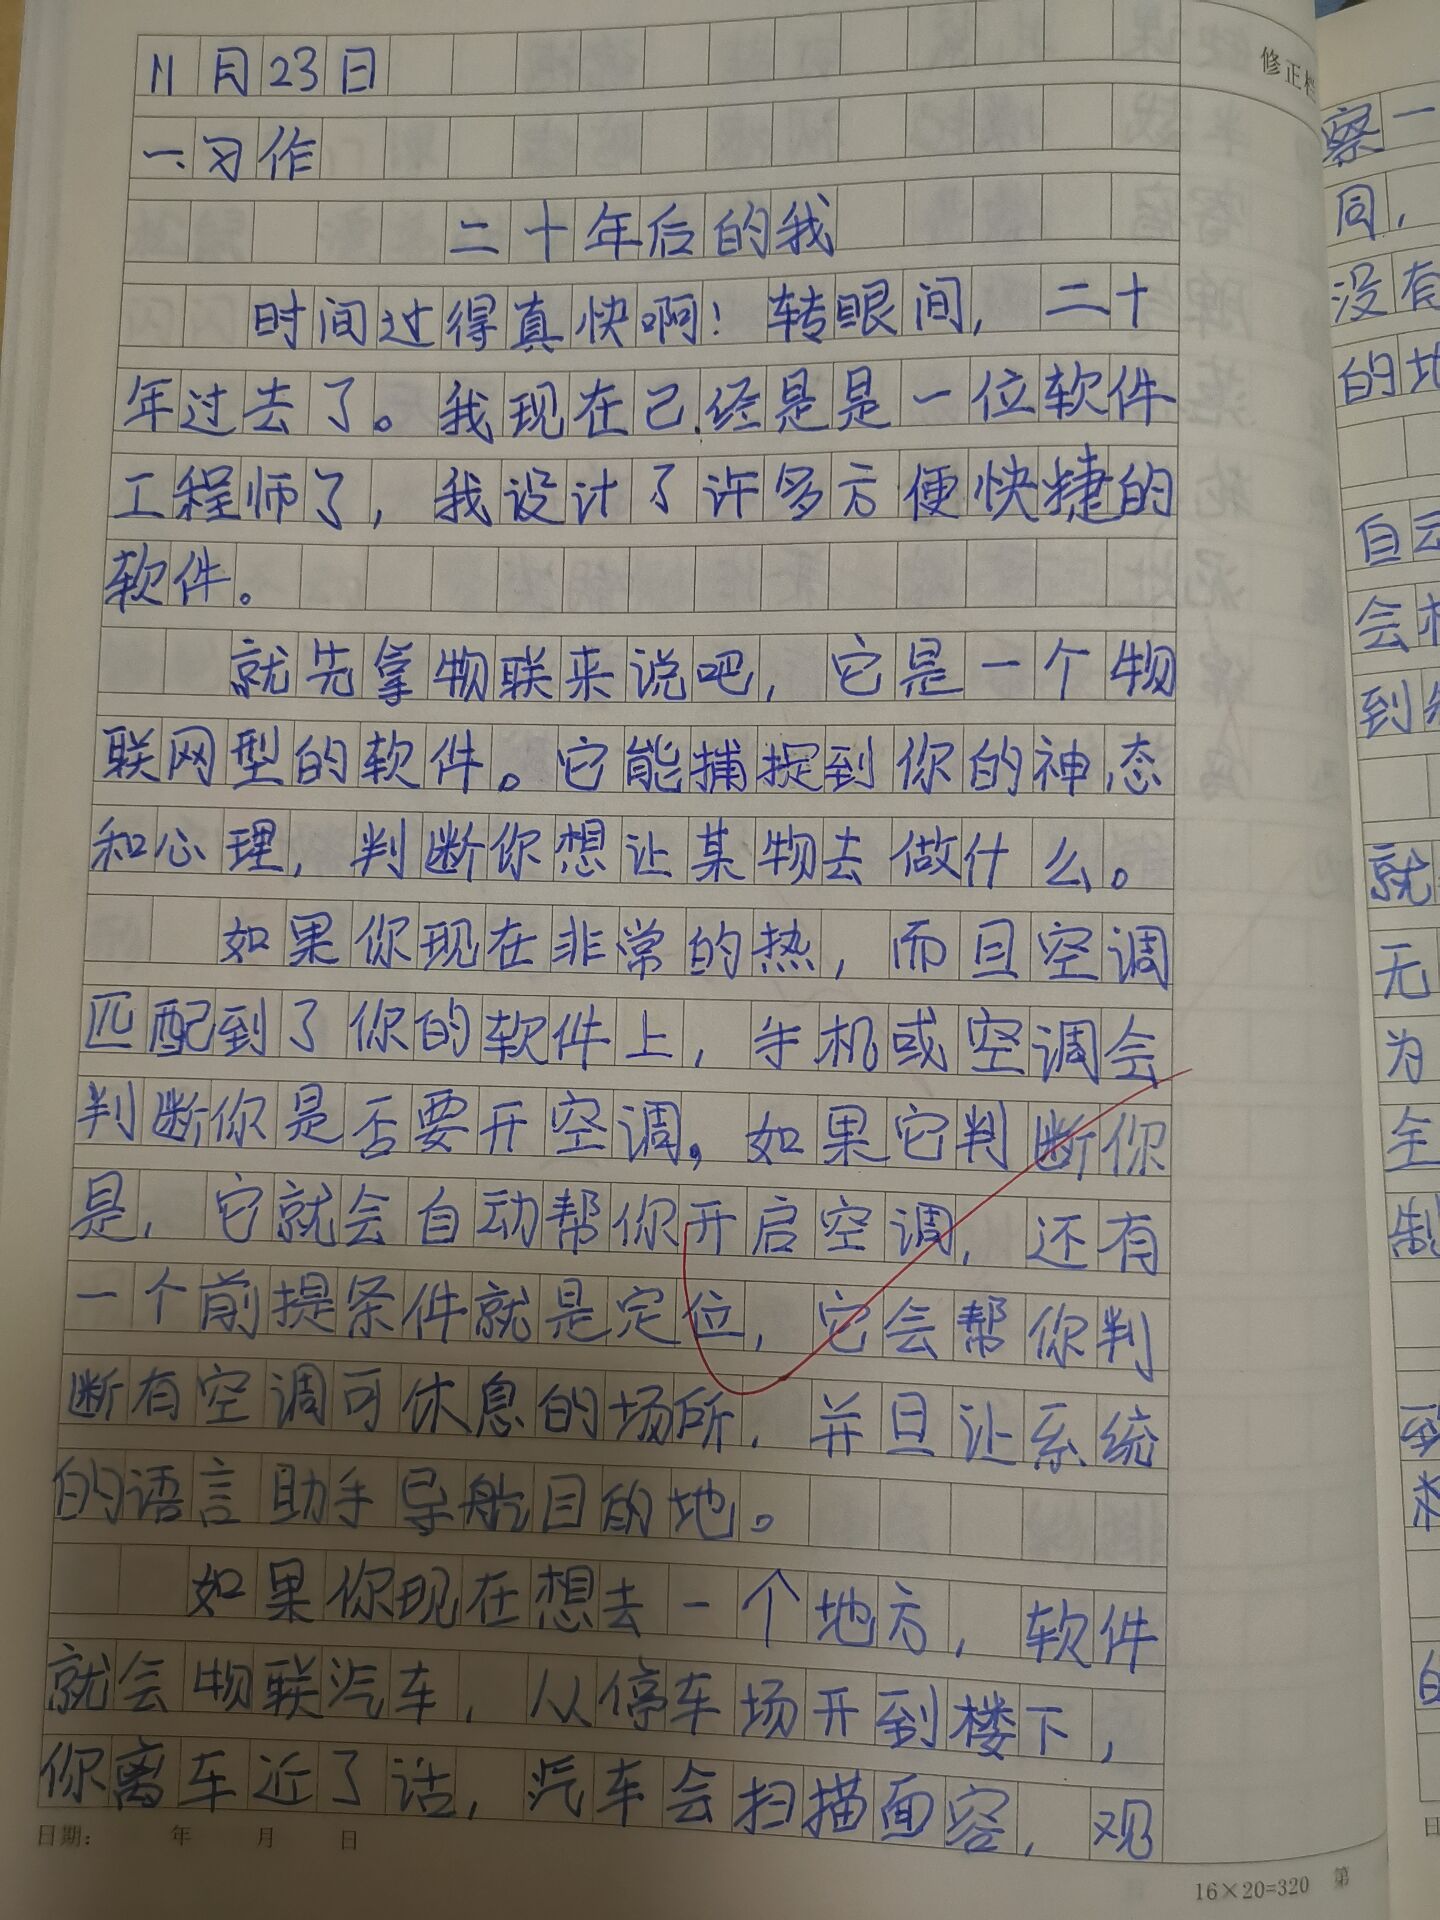 11月23日
修正栏
一.习作
二十年后的我
时间过得真快啊！转眼间，二十
年过去了。我现在已经是是一位软件
工程师了，我设计了许多方便快捷的
软件。
就先拿物联来说吧，它是一个物
联网型的软件。它能捕捉到你的神态
和心理，判断你想让某物去做什么。
如果你现在非常的热，而且空调
匹配到了你的软件上，手机或空调会
判断你是否要开空调。如果它判断你
是，它就会自动帮你开启空调，还有
一个前提条件就是定位，它会帮你判
断有空调可休息的场所，并且让系统
的语言助手导航目的地。
如果你现在想去一个地方，软件
就会物联汽车，从停车场开到楼下，
你离车近了话，汽车会扫描面容，观
日期： 年 月 日
16×20=320 第
察一
同，
没有
的地
自动
会
到
就
无
为
全
制
的